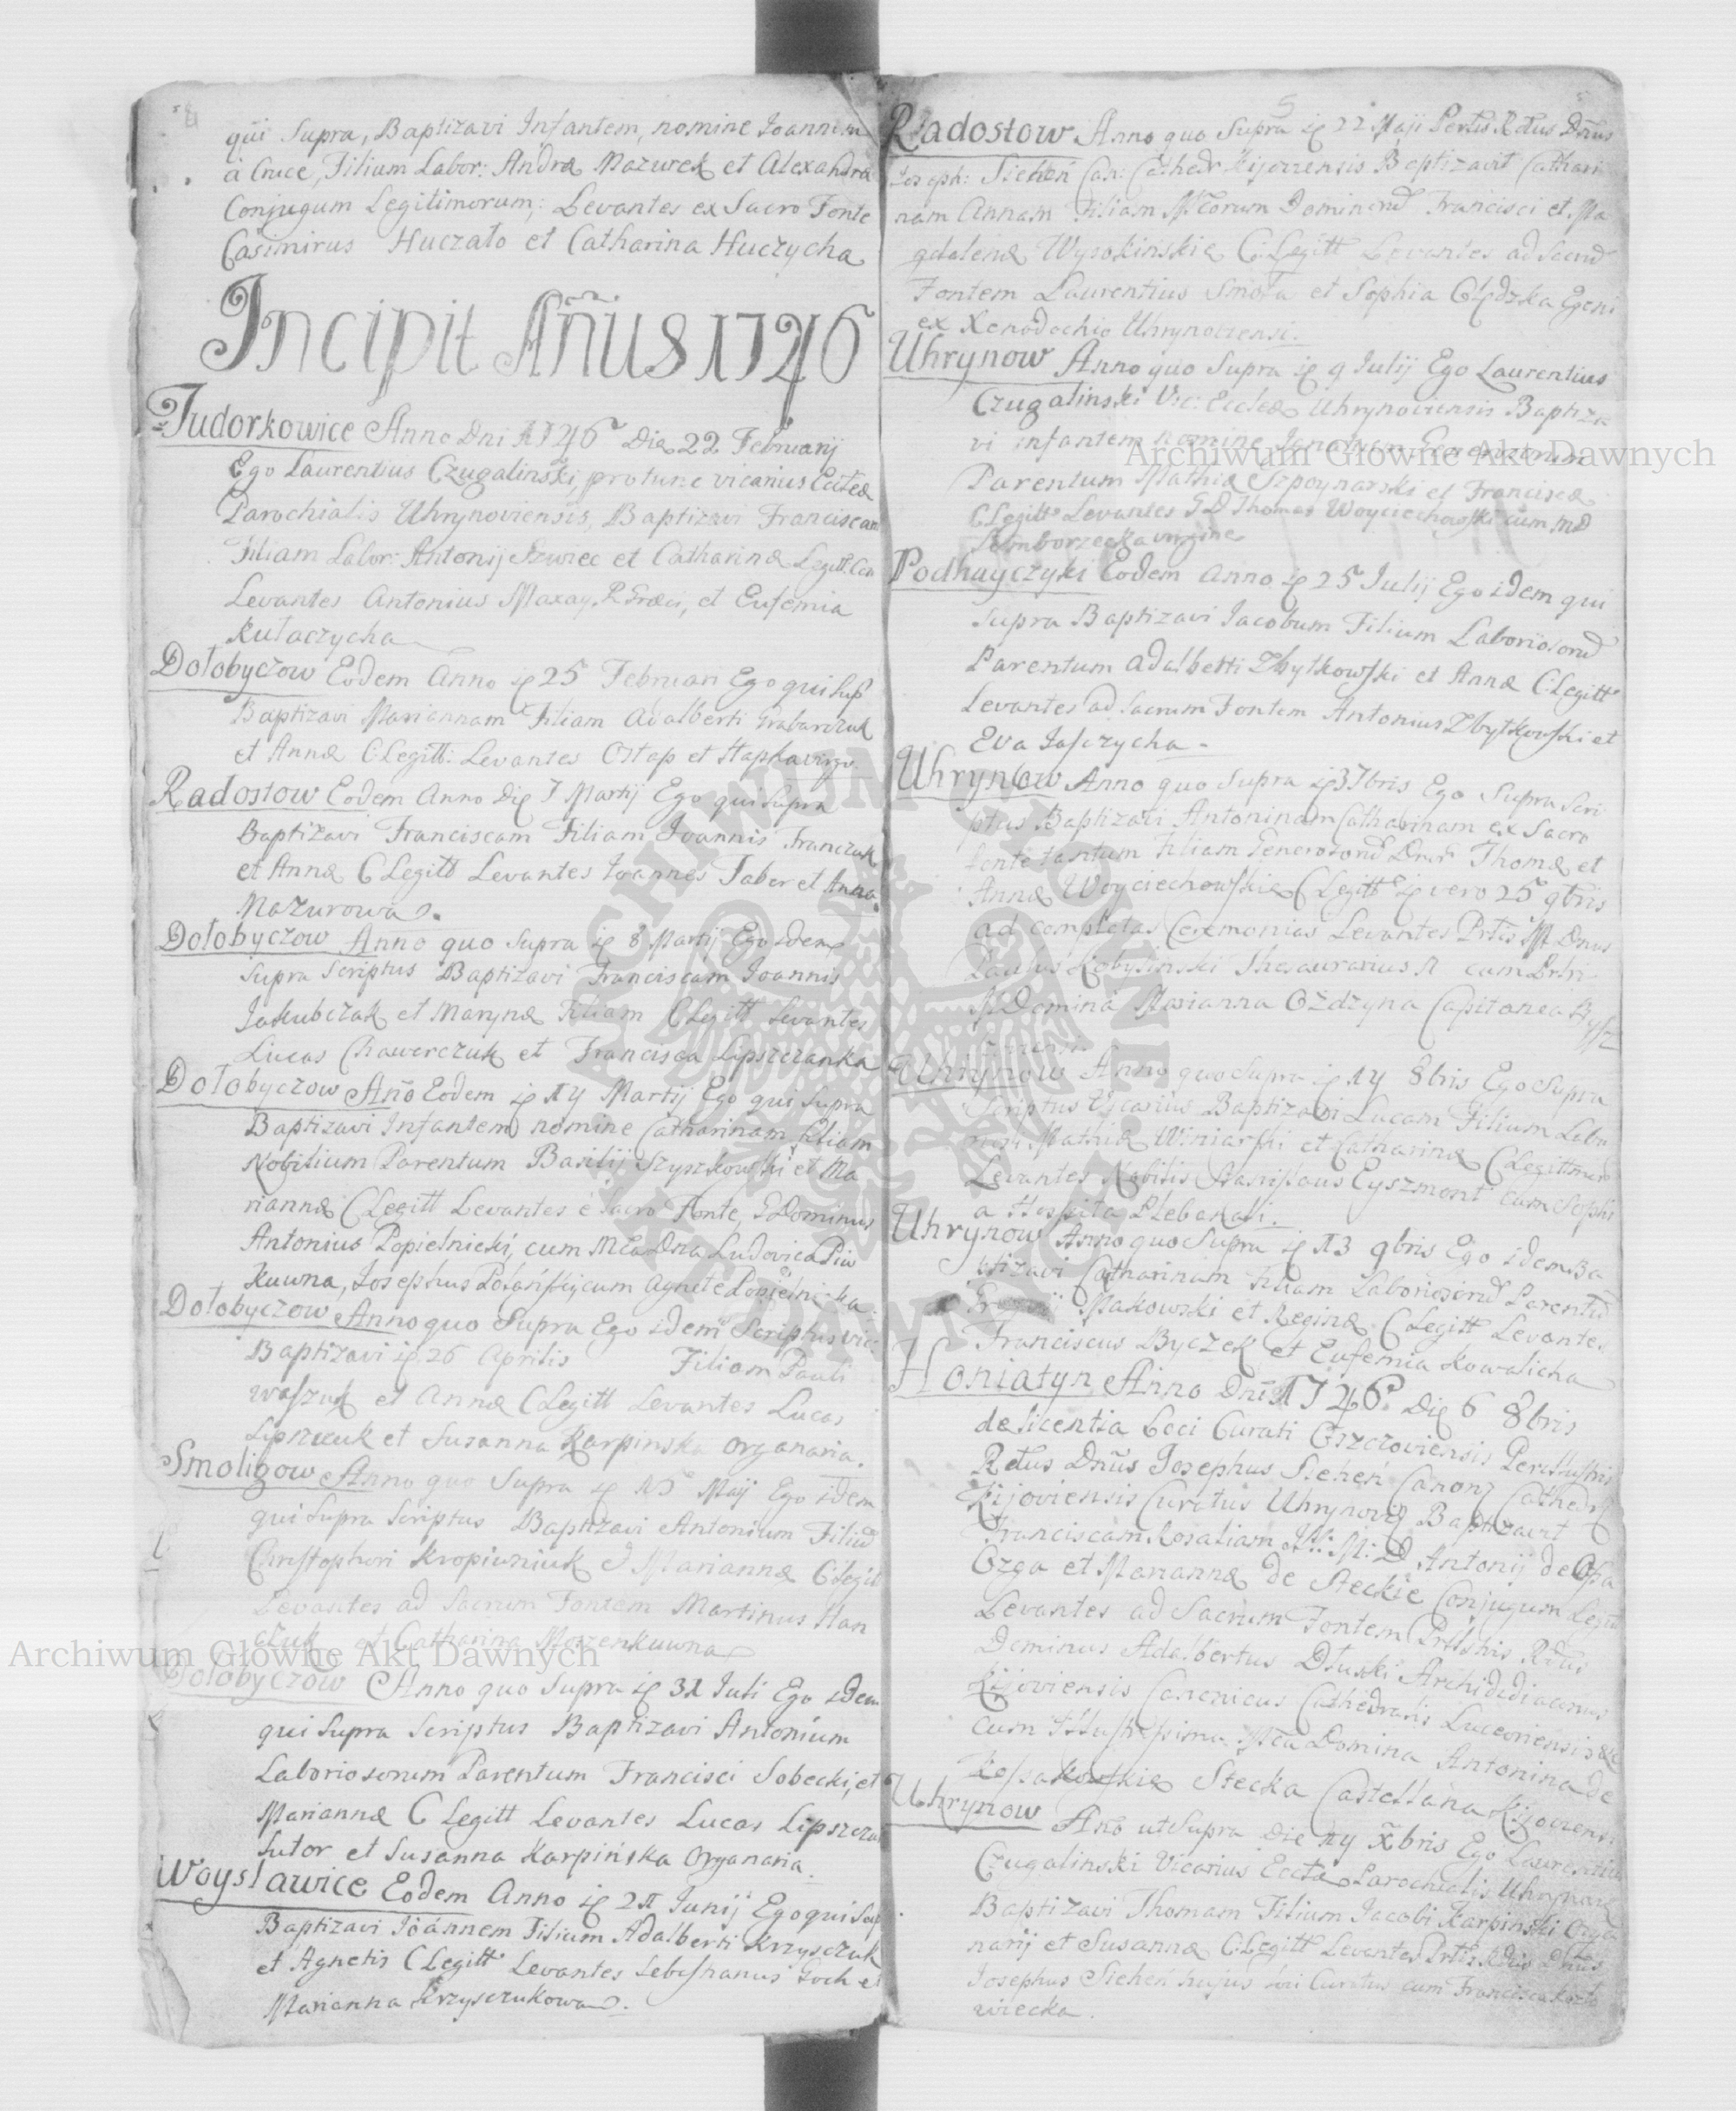 qui Supra, Baptizavi Infantem, nomine Ioannem
à Cruce, Filium Labor: Andræ Mazurek et Alexandra
Conjugum Legitimorum; Levantes ex Sacro Fonte
Casimirus Huczało et Catharina Huczycha
Incipit Añus 1746
Tudorkowice Anno Dni 1746 Die 22 Februarij
Ego Laurentius Czugalinski, pro tunc vicarius Eccleæ
Parochialis Uhrynoviensis, Baptizavi Franciscam
Filiam Labor: Antonij Szwiec et Catharinæ Legitt. Con
Levantes Antonius Maxay, R. Græci, et Eufemia
Kułaczycha
Dołobyczow Eodem Anno 25 Februari Ego qui Sup
Baptizavi Mariannam Filiam Adalberti Grabarczuk
et Annæ C: Legitt: Levantes Ostap et Hapka virgo
Radostow Eodem Anno Die 7 Martij Ego qui Supra
Baptizavi Franciscam Filiam Ioannis Franczuk
et Annæ C Legitt Levantes Ioannes Faber et Anna
Mazurowa.
Dołobyczow Anno quo Supra 8 Martij Ego idem
Supra Scriptus Baptizavi Franciscam Ioannis
Jakubczak et Marynæ Filiam C Legitt Levantes
Lucas Chawerczuk et Francisca Lipszczanka
Dołobyczow Año Eodem 14 Martij Ego qui Supra
Baptizavi Infantem nomine Catharinam Filiam
Nobilium Parentum Basilij Szyszkowski et Ma
riannæ C Legitt Levantes è Sacro Fonte, G Dominus
Antonius Popielnicki, cum Mła Dna Ludovica Piw
kuwna, Iosephus cum Agnete Popielnicka
Dołobyczow Anno quo Supra Ego idem Scriptus vic:
Baptizavi 26 Aprilis Filiam Pauli
Waszuk et Annæ C Legitt Levantes Lucas
Lipszczuk et Susanna Karpinska Organaria.
Smoligow Anno quo Supra 15 Maij Ego idem
qui Supra Scriptus Baptizavi Antonium Filiũ
Christophori Kropiwniuk et Mariannæ C: Legit
Levantes ad Sacrum Fontem Martinus Han
czuk et Catharina Morzenkuwna
Dołobyczow Anno quo Supra 31 Iuli Ego idem
qui Supra Scriptus Baptizavi Antonium
Laboriosorum Parentum Francisci Sobecki, et
Mariannæ C Legitt Levantes Lucas Lipszczu
Sutor et Susanna Karpińska Organaria.
Woysławice Eodem Anno 21 Iunij Ego qui Sup
Baptizavi Ioannem Filium Adalberti Krzysczuk
et Agnetis C Legitt Levantes Sebestianus Goch et
Marianna Krzysczukowa.
5
Radostow Anno quo Supra 22 Maji Perlis Rdus Dñus
Ioseph: Siehen Can: Cathedr Kijoviensis Baptizavit Cathari
nam Annam Filiam Mcorum Dominorũ Francisci et Ma
gdalenæ Wysokinskie C: Legitt Levantes ad Sacrũ
Fontem Laurentius Smoła et Sophia Głędzka Egeni
ex Xenodochio Uhrynoviensi.
Uhrynow Anno quo Supra 9 Iulij Ego Laurentius
Czugalinski Vic: Eccleæ Uhrynoviensis Baptiza
vi infantem nomine Ignatium Generosorum
Parentum Mathiæ Szpoynarski et Franciscæ
C. Legitt. Levantes G D Thomas Woyciechowski cum MD
virgine
Podhayczyki Eodem Anno 25 Iulij Ego idem qui
Supra Baptizavi Iacobum Filium Laboriosorũ
Parentum Adalberti Zbytkowski et Annæ C: Legitt
Levantes ad Sacrum Fontem Antonius Zbytkowski et
Eva Iasczycha -
Uhrynow Anno quo Supra 3 7bris Ego Supra Scri
ptus Baptizavi Antoninam Catharinam ex Sacro
fonte tantum Filiam Generosorũ Dnorũ Thomæ et
Annæ Woyciechowskie C Legitt vero 25 9bris
ad completas Ceremonias Levantes Prtis M. Dnus
Paulus Kobyliński Thesaurarius cum
M Domina Marianna Ożdżyna Capitanea
Uhrynow Anno quo Supra 14 8bris Ego Supra
Scriptus Vicarius Baptizavi Lucam Filium Labo
Mathiæ Winiarski et Catharinæ C Legittimorũ
Levantes Nobilis Eyszmont cum Sophi
a Hospita Plebanali.
Uhrynow Anno quo Supra 13 9bris Ego idem Ba
ptizavi Catharinam Filiam Laboriosorũ Parentũ
Gregorij Makowski et Reginæ C Legitt Levantes
Franciscus Byczek et Eufemia Kowalicha
Honiatyn Anno Dni 1746. Die 6 8bris
de licentia Loci Curati Oszczoviensis Perillustris
Rdus Dñus Josephus Siehen Canon Cathedr
Kijoviensis Curatus Uhrynoviæ Baptizavit
Franciscam Rosaliam M: D Antonij de Osa
Ozga et Mariannæ de Steckie Conjugum Legitt
Levantes ad Sacrum Fontem Prllstris Rdus
Dominus Adalbertus Dłuski Archididiaconus
Kijoviensis Canonicus Cathedralis Luceoriensis &c
cum Illustrissima Mca Domina Antonina de
Stecka Castellana Kijoviensi
Uhrynow Año ut Supra Die 14 Xbris Ego Laurentius
Czugalinski Vicarius Eccłæ Parochialis Uhrynoviæ
Baptizavi Thomam Filium Jacobi Karpinski Orga
narij et Susannæ C: Legitt Levantes Prtis Rdus Dñus
Josephus Siehen hujus loci Curatus cum Francisca
wiecka.
Archiwum Główne Akt Dawnych
Archiwum Główne Akt Dawnych
ARCHIWUM GŁÓWNE AKT DAWNYCH